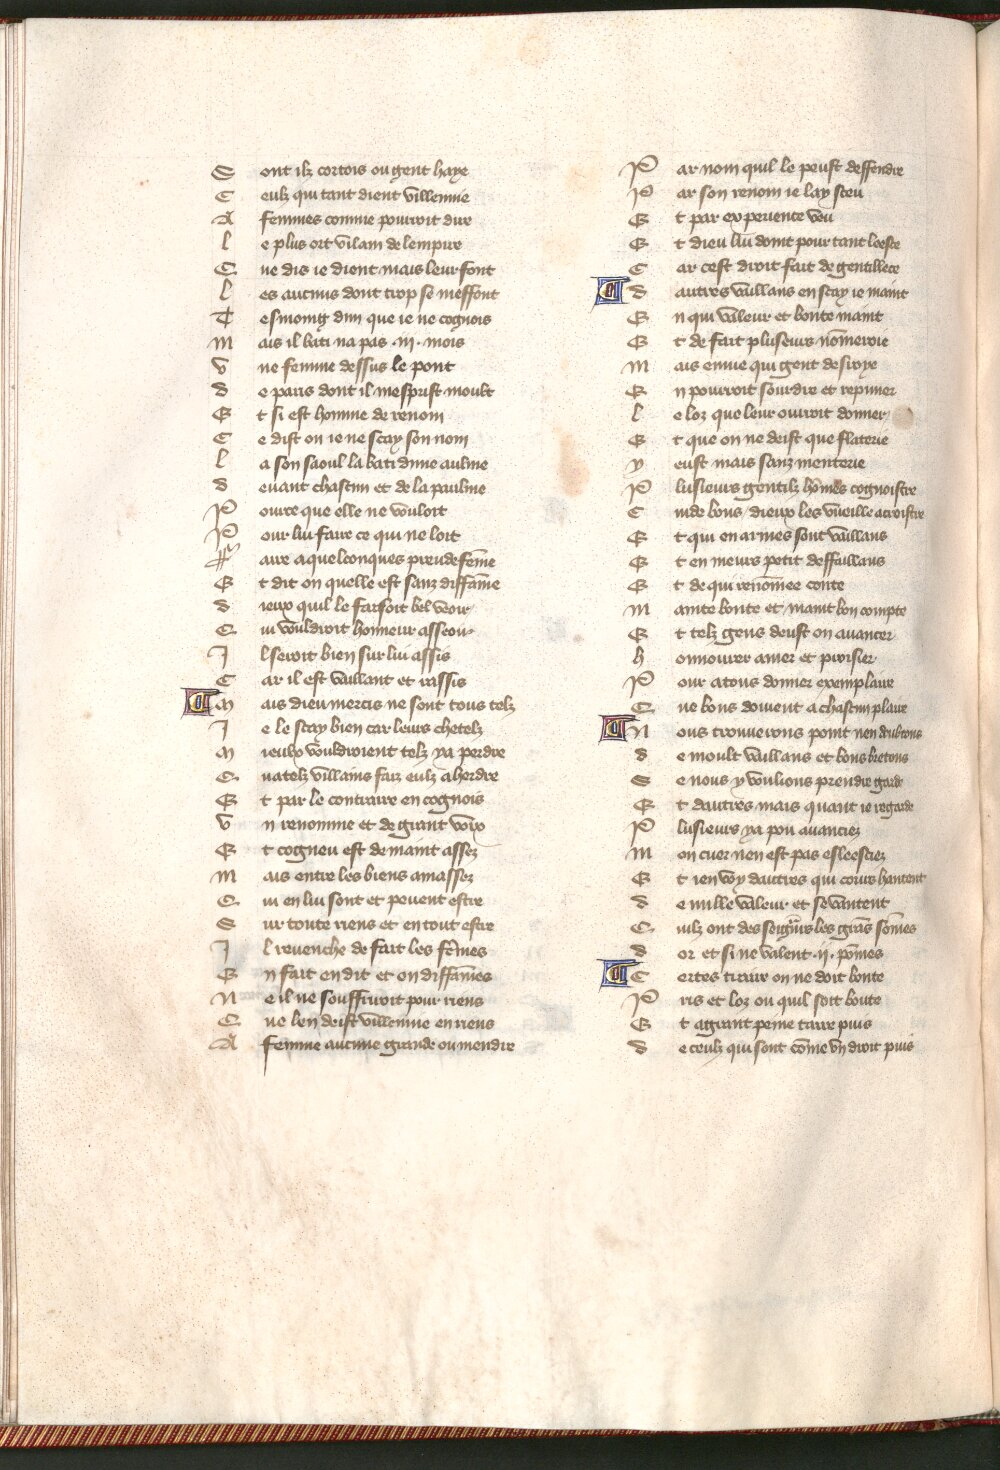 S ont ilz cortois ou gent haye
C eulz qui tant dient villennie
A femmes comme pourroit dire
L e plus ort vilain de lempire
Q ne dis ie dient mais leur font
L es aucuns dont trop se meffont
T esmoing dun que ie ne cognois
M ais il bati na pas .iii. mois
V ne femme dessus le pont
D e paris dont il mesprist moult
E t si est homme de renom
C e dist on ie ne scay son nom
L a son saoul la bati dune aulme
D evant chascun et de la paulme
P ource que elle ne vouloit
P our lui faire ce qui ne loit
F aire a quelconques preudefem̄e
E t dit on quelle est sanz diffam̄e
D ieux quil le faisoit bel veoir
Q ui vouldroit honneur asseoir
I l seroit bien sur lui assis
C ar il est vaillant et rassis
M ais dieu mercis ne sont tous telz
I e le scay bien car leurs chetelz
M ieulx vouldroient telz ya perdre
Q ua telz villains faiz eulz ahordre
E t par le contraire en cognois
V n renomme et de grant voix
E t cogneu est de maint assez
M ais entre les biens amassez
Q ui en lui sont et pevent estre
S ur toute riens et en tout estre
I l revenche de fait les fem̄es
E n fait en dit et on diffam̄es
N e il ne souffriroit pour riens
Q ue len deist villennie en riens
A femme aucune grande ou mendre
P ar nom quil le peust deffendre
P ar son renom ie lay sceu
E t par experience veu
E t dieu lui doint pour tant leesce
C ar cest droit fait de gentillece
D autres vaillans en scay ie maint
E n qui valeur et bonte maint
E t de fait pluseurs nom̄eroie
M ais envie qui gent desroye
E n pourroit sourdre et repiner
L e loz que leur ourroit donner
E t que on ne deist que flaterie
Y eust mais sanz menterie
P lusieurs gentilz hom̄es cognoistre
C uide bons / dieux les vueille acroistre
E t qui en armes sont vaillans
E t en meurs petit deffaillans
E t de qui renom̄ee conte
M ainte bonte et maint bon compte
E t telz gens deust on avancer
H onnourer amer et proisier
P our a tous donner exemplaire
Q ue bons doivent a chascun plaire
N ous trouverons point nen doubtons
D e moult vaillans et bons bretons
S e nous y voulions prendre garde
E t dautres mais quant ie regarde
P lusieurs ya pou avanciez
M on cuer nen est pas esleesciez
E t ien voy dautres qui cours hantent
D e nulle valeur et se vantent
Q uilz ont des seign̄rs les grās som̄es
D or et si ne valent .ii. pom̄es
C ertes tirair on ne doit bonte
P ris et loz ou quil soit boute
E t a grant peine taire puis
D e ceulz qui sont com̄e vn droit puis